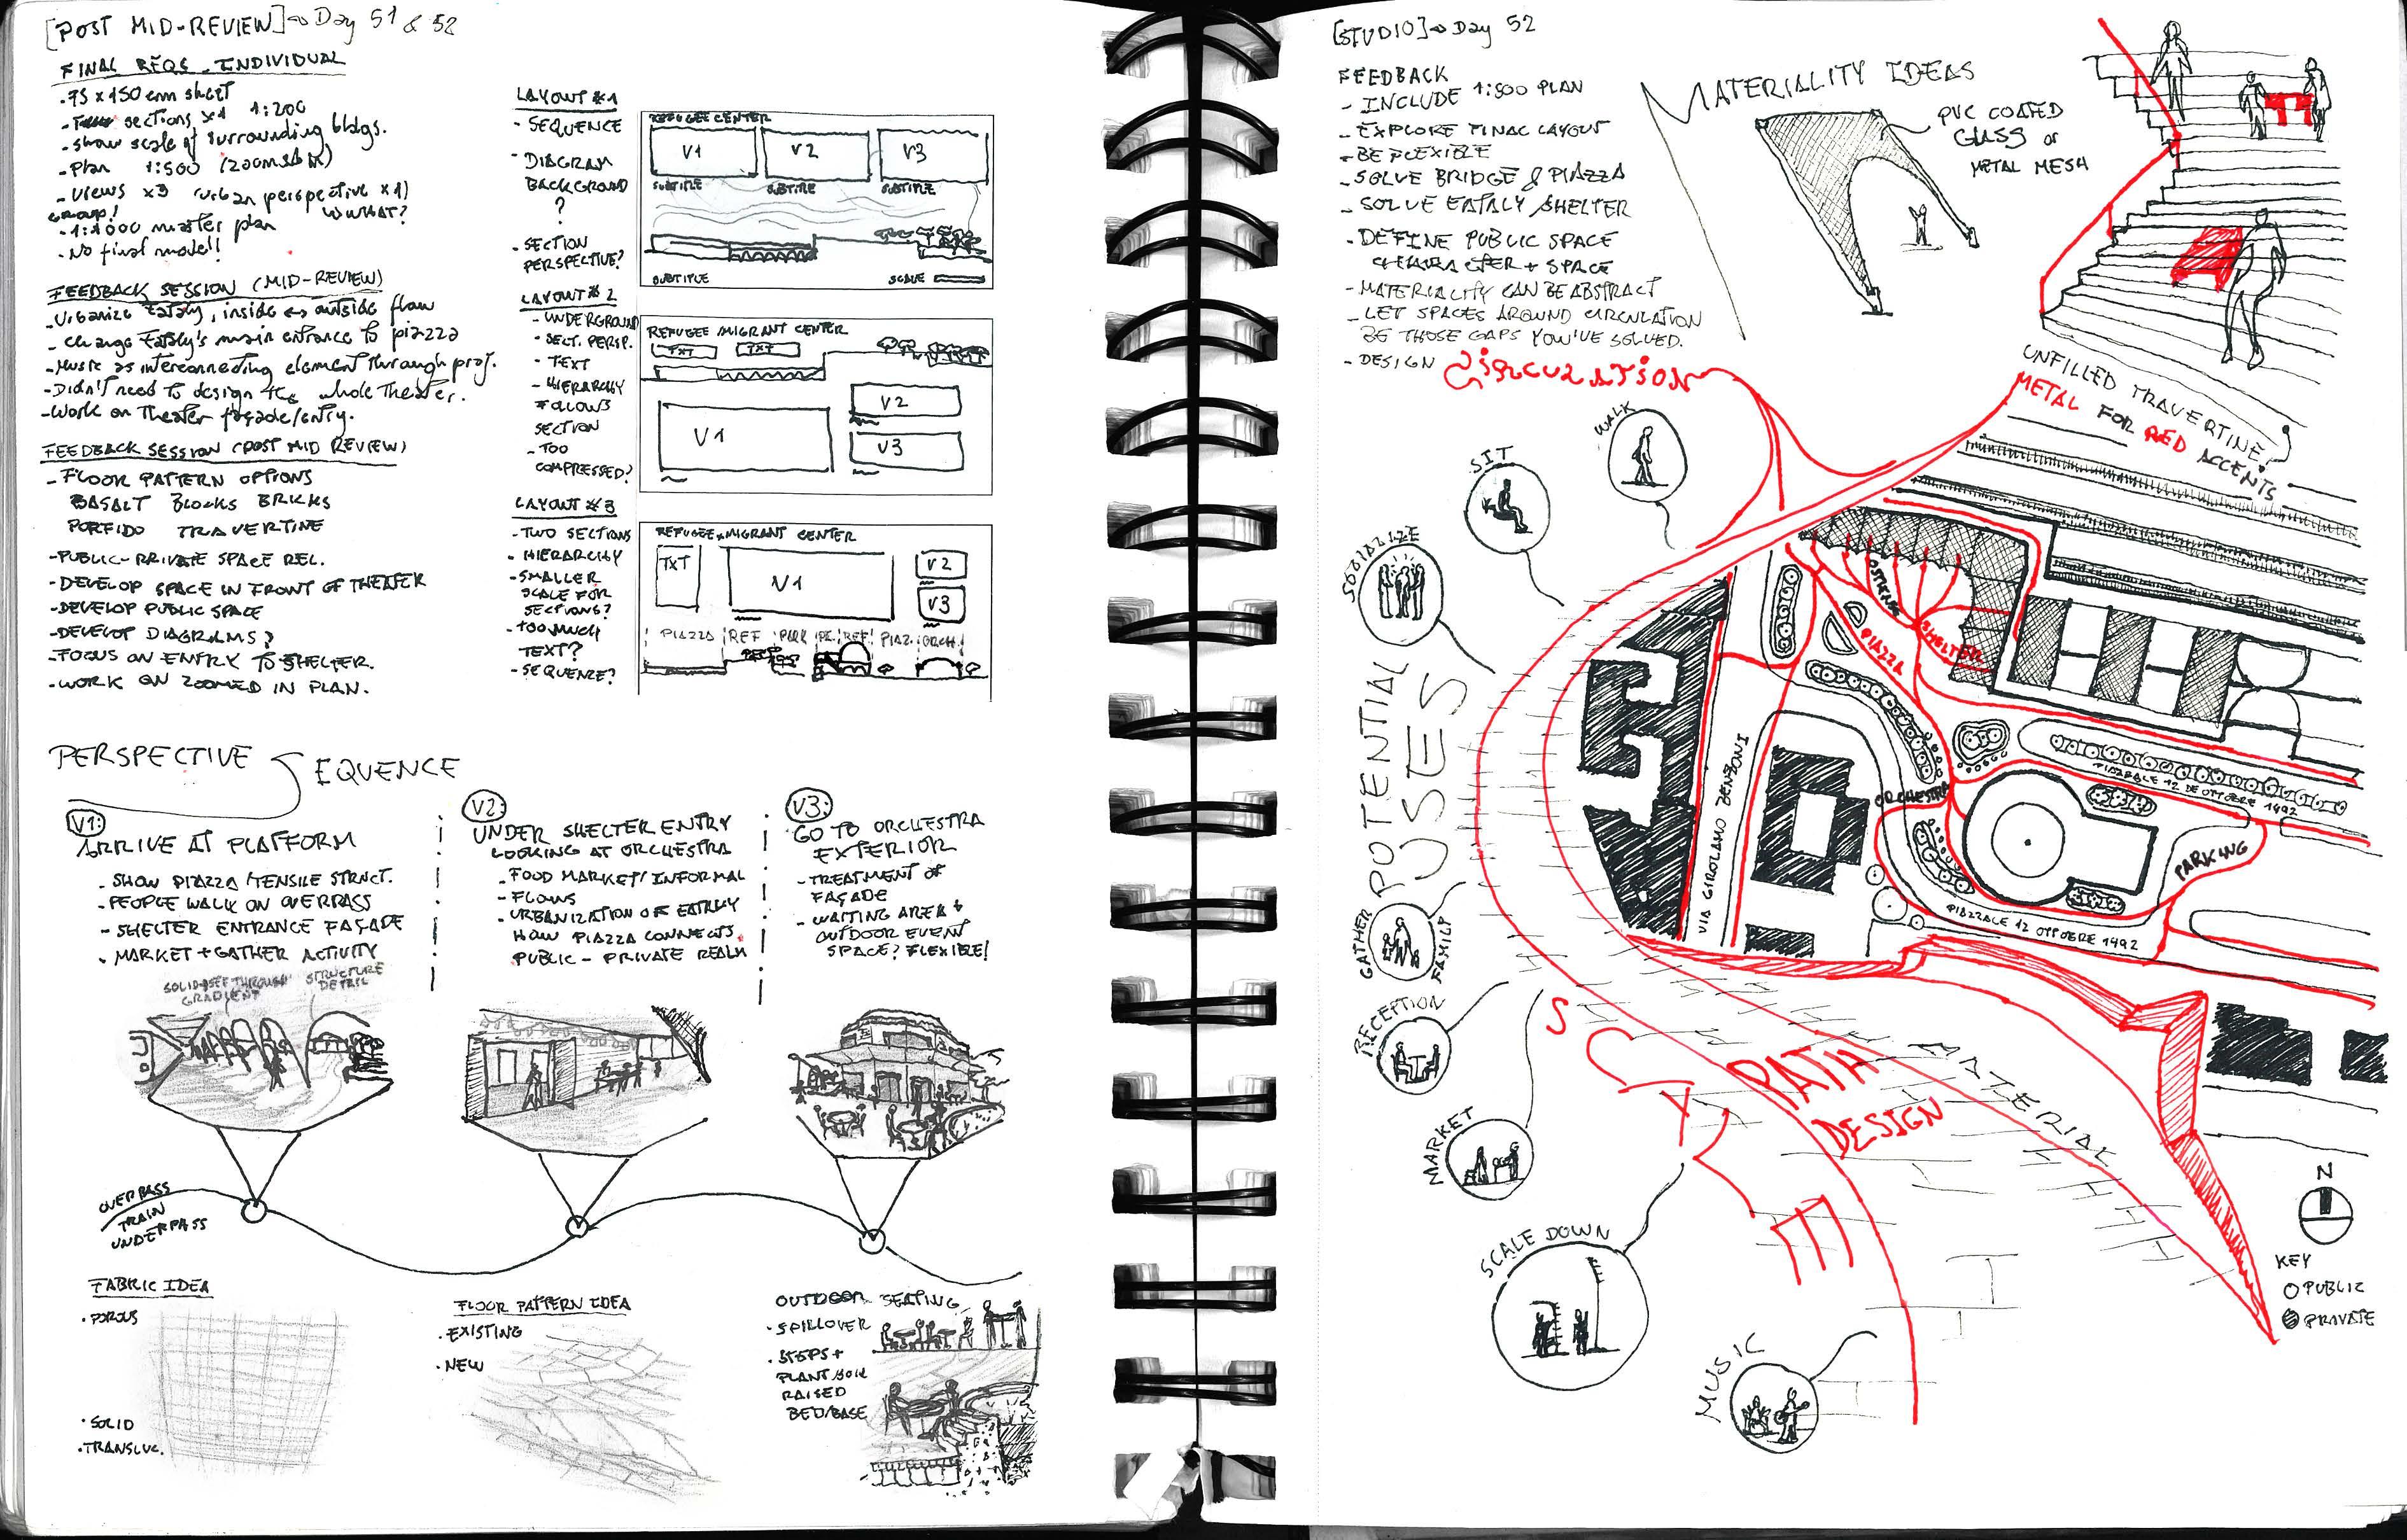 [POST MID-REVIEW] Day 51 & 52
FINAL REQS. INDIVIDUAL
. 75 x 150 cm sheet
- sections x1 1:200
- show scale of surrounding bldgs.
- Plan 1:500 (zoomed in)
- Views x3 (urban perspective x1)
GROUP! WHAT?
- 1:1000 master plan
- No final model!!
FEEDBACK SESSION (MID-REVIEW)
- Urbanize Eataly, inside ↔ outside flow
- Change Eataly's main entrance to piazza
- Music as interconnecting element through proj.
- Didn't need to design the whole theater.
- Work on theater façade/entry.
FEEDBACK SESSION (POST MID REVIEW)
- FLOOR PATTERN OPTIONS
BASALT BLOCKS BRICKS
PORFIDO TRAVERTINE
- PUBLIC-PRIVATE SPACE REL.
- DEVELOP SPACE IN FRONT OF THEATER
- DEVELOP PUBLIC SPACE
- DEVELOP DIAGRAMS?
- FOCUS ON ENTRY TO SHELTER.
- WORK ON ZOOMED IN PLAN.
LAYOUT #1
- SEQUENCE
- DIAGRAM
BACKGROUND
?
- SECTION
PERSPECTIVE?
REFUGEE CENTER
V1 V2 V3
SUBTITLE SUBTITLE SUBTITLE
SUBTITLE SCALE
LAYOUT #2
- UNDERGROUND
- SECT. PERSP.
- TEXT
- HIERARCHY
FOLLOWS
SECTION
- TOO
COMPRESSED?
REFUGEE/MIGRANT CENTER
TXT TXT
V1 V2
V3
LAYOUT #3
- TWO SECTIONS
- HIERARCHY
- SMALLER
SCALE FOR
SECTIONS?
- TOO MUCH
TEXT?
- SEQUENCE?
REFUGEE+MIGRANT CENTER
TXT V1 V2
V3
PIAZZA REF PARK REF PIAZ. ORCH.
PERSPECTIVE SEQUENCE
V1:
ARRIVE AT PLATFORM
- SHOW PIAZZA/TENSILE STRUCT.
- PEOPLE WALK ON OVERPASS
- SHELTER ENTRANCE FAÇADE
. MARKET + GATHER ACTIVITY
SOLID → SEE THROUGH
GRADIENT
STRUCTURE
DETAIL
V2:
UNDER SHELTER ENTRY
LOOKING AT ORCHESTRA
- FOOD MARKET/INFORMAL
- FLOWS
- URBANIZATION OF EATALY
HOW PIAZZA CONNECTS
PUBLIC - PRIVATE REALM
V3:
GO TO ORCHESTRA
EXTERIOR
- TREATMENT OF
FAÇADE
- WAITING AREA &
OUTDOOR EVENT
SPACE? FLEXIBLE!
OVERPASS
TRAIN
UNDERPASS
FABRIC IDEA
. POROUS
. SOLID
. TRANSLUC.
FLOOR PATTERN IDEA
. EXISTING
. NEW
OUTDOOR SEATING
. SPILLOVER
. STEPS +
PLANT/SOIL
RAISED
BED/BASE
[STUDIO] Day 52
FEEDBACK
- INCLUDE 1:500 PLAN
- EXPLORE FINAL LAYOUT
- BE FLEXIBLE
- SOLVE BRIDGE & PIAZZA
- SOLVE EATALY/SHELTER
- DEFINE PUBLIC SPACE
CHARACTER + SPACE
- MATERIALITY CAN BE ABSTRACT
- LET SPACES AROUND CIRCULATION
BE THOSE GAPS YOU'VE SOLVED.
- DESIGN CIRCULATION
MATERIALITY IDEAS
PVC COATED
GLASS or
METAL MESH
UNFILLED TRAVERTINE,
METAL FOR RED ACCENTS
POTENTIAL
USES
WALK
SIT
SOCIALIZE
GATHER
FAMILY
RECEPTION
MARKET
SCALE DOWN
MUSIC
OSTIENSE
PIAZZA
SHELTER
ORCHESTRA
VIA GIROLAMO BENZONI
PIAZZALE 12 DE OTTOBRE 1492
PARKING
PIAZZALE 12 OTTOBRE 1492
PATH
DESIGN
MATERIAL
N
KEY
PUBLIC
PRIVATE